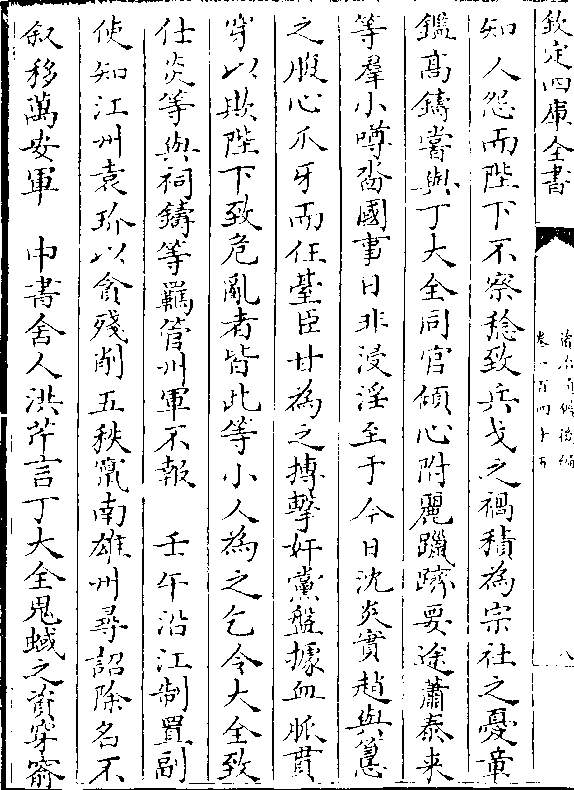 欽定四庫全書
資治通鑑後編
卷一百四十五
八
知人怨而陛下不察稔致兵戈之禍積為宗社之憂章
鑑高鑄嘗與丁大全同官傾心附麗躐躋要途蕭泰来
等羣小噂沓國事日非浸淫至于今日沈炎實趙與𥲅
之腹心爪牙而任臺臣甘為之搏擊奸黨盤據血脈貫
穿以欺陛下致危亂者皆此等小人為之乞令大全致
仕炎等與祠鑄等羈管州軍不報　壬午沿江制置副
使知江州袁玠以貪殘削五秩竄南雄州尋詔除名不
叙移萬安軍　中書舍人洪芹言丁大全鬼蜮之資穿窬